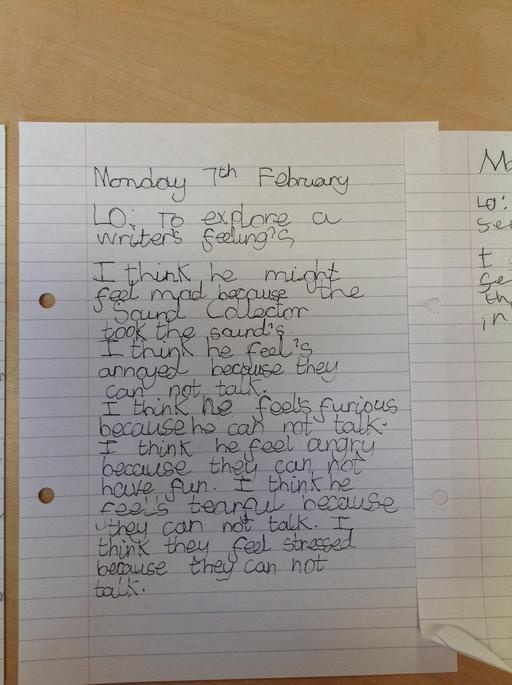 Monday 7th February
LO: To explore a
writer's feeling's
I think he might
feel mad because the
Sound Collector
took the sound's.
I think he feel's
annoyed because they
can not talk.
I think he feel's furious
because he can not talk.
I think he feel angry
because they can not
have fun. I think he
feel's tearful because
they can not talk. I
think they feel stressed
because they can not
talk.
Mo
LO:
see
I
se
th
in